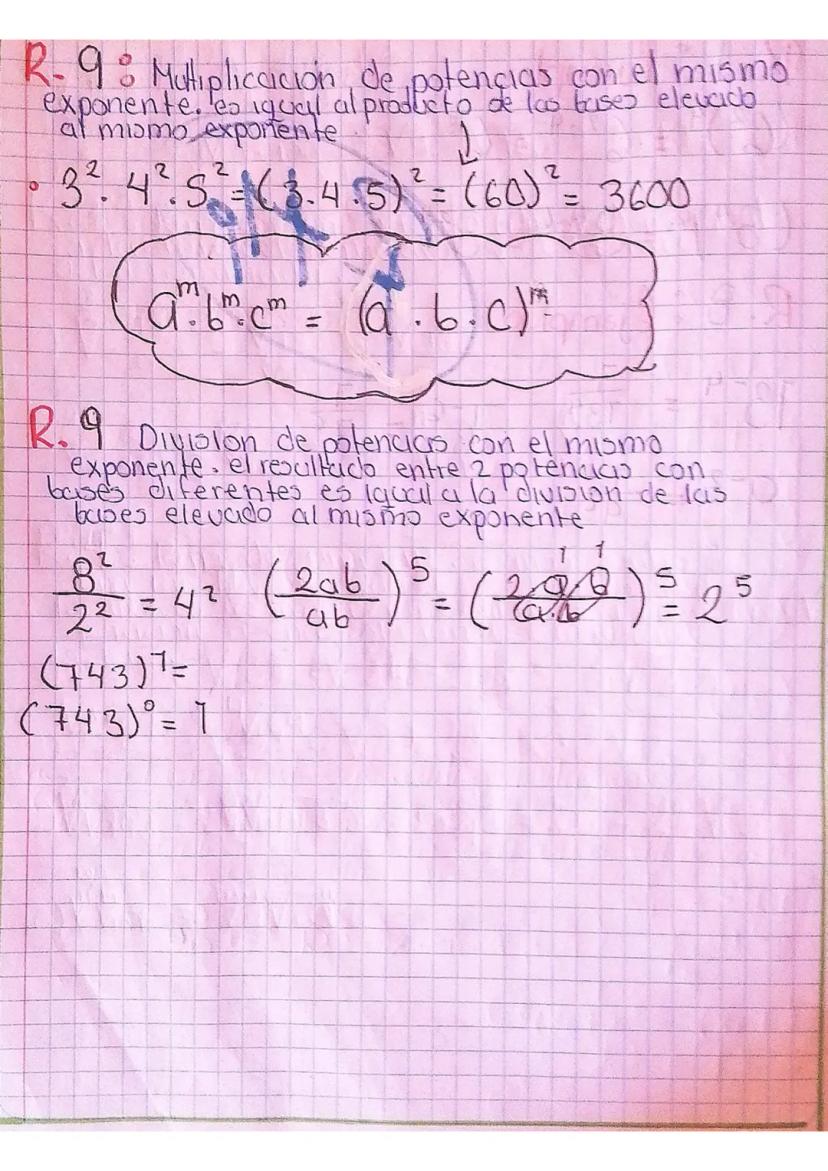 R. 9: Multiplicación de potencias con el mismo
exponente. es igual al producto de las bases elevado
al mismo exponente
• 3². 4². 5² = (3.4.5)² = (60)² = 3600
aᵐ.bᵐ.cᵐ = (a.b.c)ᵐ
R. 9 Division de potencias con el mismo
exponente. el resultado entre 2 potencias con
bases diferentes es igual a la division de las
bases elevado al mismo exponente
8²/2² = 4² (2ab/ab)⁵ = (2ab/a.b)⁵ = 2⁵
1 1
(743)¹ =
(743)⁰ = 1